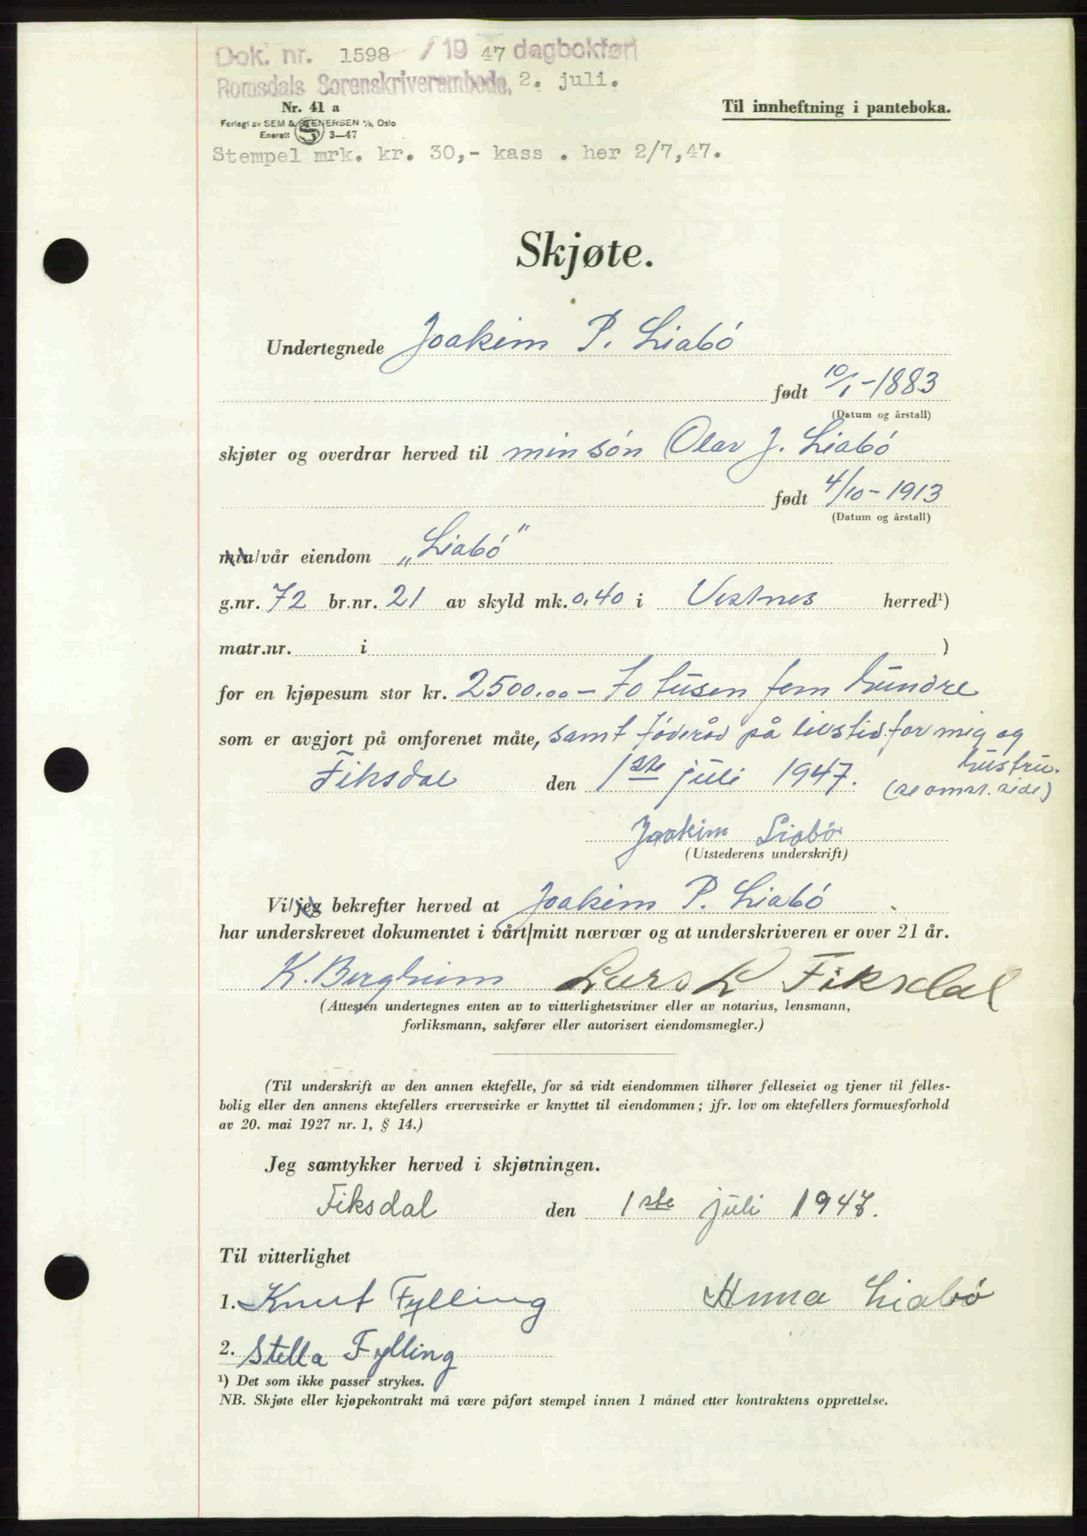 Dok. nr. 1598 / 19 47 dagbokført
Romsdals Sorenskriverembede, 2. juli.
Nr. 41 a
Til innheftning i panteboka.
Forlagt av SEM & STENERSEN A/S, Oslo
Enerett S 3—47
Stempel mrk. kr. 30,- kass . her 2/7,47.
Skjøte.
Undertegnede Joakim P. Liabó
født 10/1-1883
(Datum og årstall)
skjøter og overdrar herved til min són Olav J. Liabó
født 4/10-1913
(Datum og årstall)
min/vår eiendom „Liabó"
g.nr. 72 br.nr. 21 av skyld mk. 0.40 i Vestnes herred¹)
matr.nr. i )
for en kjøpesum stor kr. 2500.00 - To tusen fem hundre
som er avgjort på omforenet måte, samt föderåd på livstid for mig og
hustru.
Fiksdal den 1ste juli 1947. (se omst. side)
Joakim Liabó
(Utstederens underskrift)
Vi/jeg bekrefter herved at Joakim P. Liabó
har underskrevet dokumentet i vårt/mitt nærvær og at underskriveren er over 21 år.
K. Bergheim Lars L Fiksdal
(Attesten undertegnes enten av to vitterlighetsvitner eller av notarius, lensmann,
forliksmann, sakfører eller autorisert eiendomsmegler.)
(Til underskrift av den annen ektefelle, for så vidt eiendommen tilhører felleseiet og tjener til felles-
bolig eller den annens ektefellers ervervsvirke er knyttet til eiendommen; jfr. lov om ektefellers formuesforhold
av 20. mai 1927 nr. 1, § 14.)
Jeg samtykker herved i skjøtningen.
Fiksdal den 1ste juli 1947.
Til vitterlighet
1. Knut Fylling Anna Liabö
2. Stella Fylling
¹) Det som ikke passer strykes.
NB. Skjøte eller kjøpekontrakt må være påført stempel innen 1 måned etter kontraktens opprettelse.